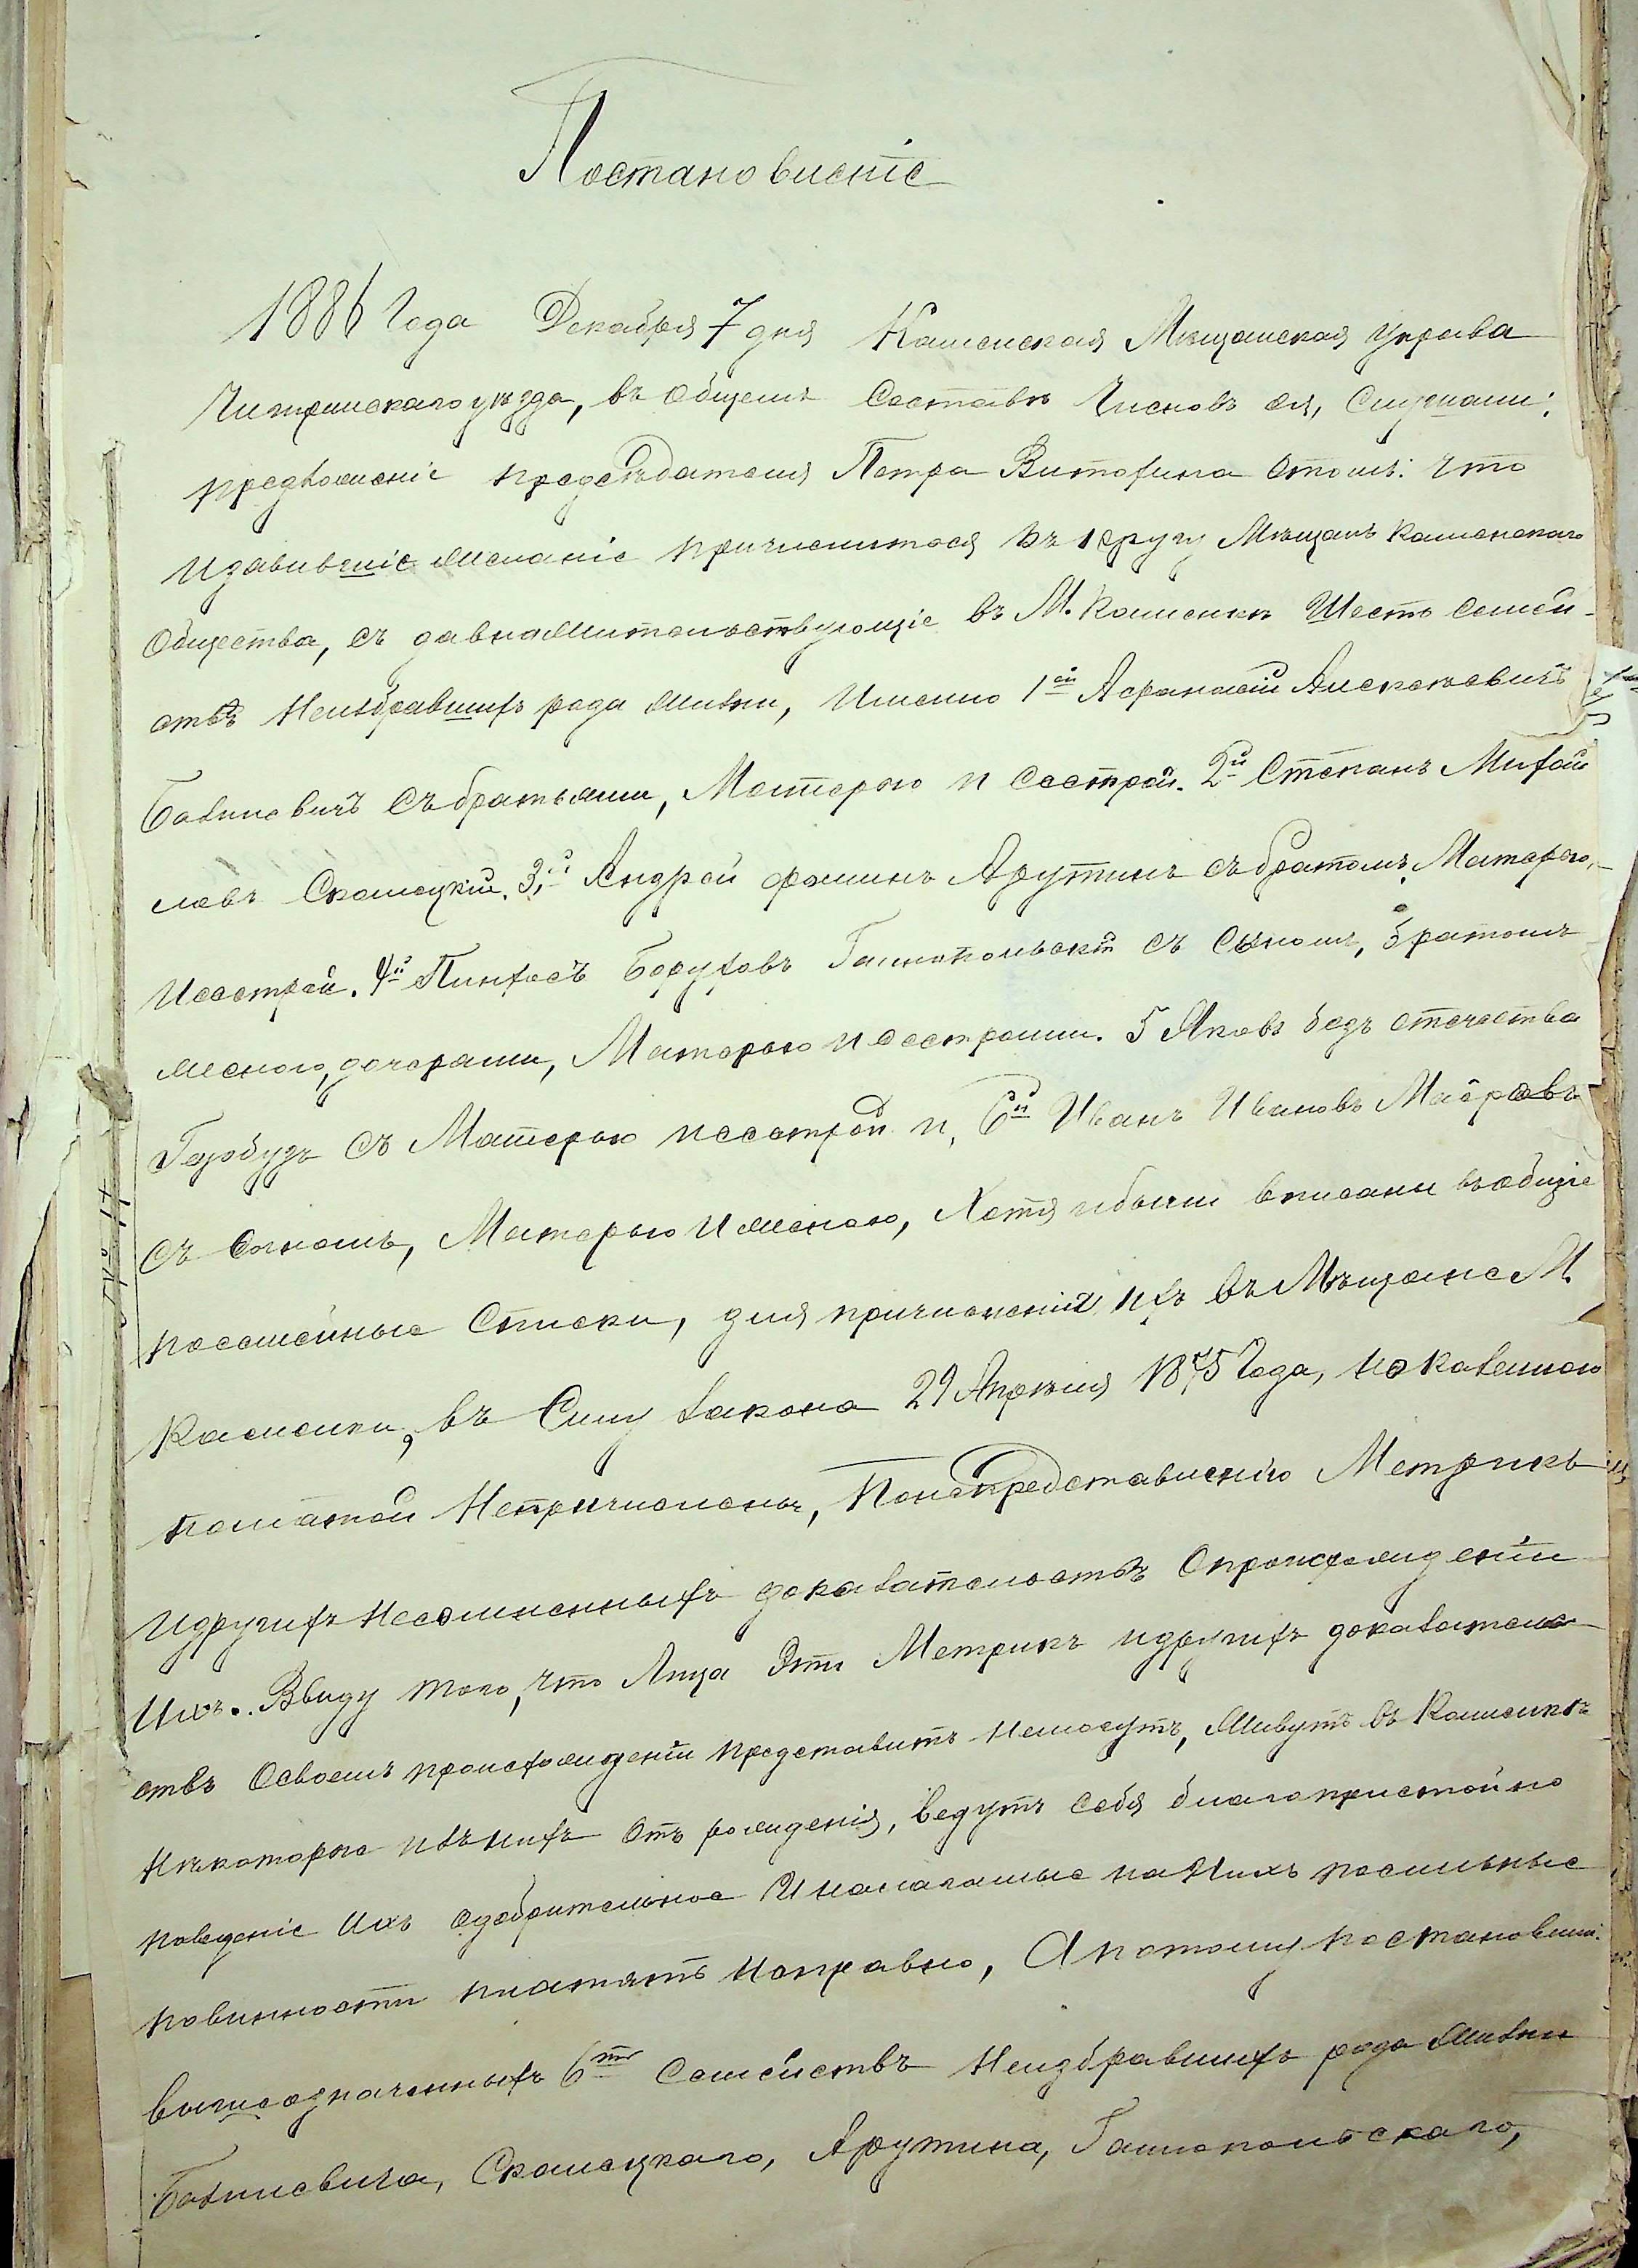 Постановленіе
1886 Года Декабря 7 дня Каменская Мѣщанская управа
Чигринскаго уѣзда, въ общемъ Составѣ Членовъ ея, Слушали:
предложеніе председателя Петра Витохина отомъ: что
изъявившіе желаніе причислится къ 1 Мѣщанъ Каменскаго
Общества, съ давнажительствующіе въ М. Каменкѣ Шесть семей-
ствъ Неизбравшихъ рода жизни, Именно 1ой Афранасій Алексѣевичъ
съ братьями, Матерью и Сестрой. 2й Степанъ Михай
ловъ Скалецкій. 3,й Андрей Фоминъ Арутинъ съ братомъ, Матерью,
Исестрой. 4й Пинхосъ Боруховъ Гайнопольскій съ Сыномъ, братомъ
женою, дочерами, Матерью и сестрами. 5 Яковъ безъ отечества
съ Матерью исестрой и, 6й Иванъ Ивановъ Маёровъ
съ Сыномъ, Матерью и женою, Хотя ибыли вписаны въобщіе
посемейные Списки, для причисленія ихъ въ Мѣщане М.
Каменки, въ Силу закона 29 Апрѣля 1875 Года, но Казенною
полатой Непричислены, Понепредставленію Метрикъ
Идругихъ Несомненныхъ доказательствъ Опроисхожденіи
Ихъ. Ввиду того, что Лица Эти Метрикъ идругихъ доказатель
ствъ Освоемъ происхожденіи представить Немогутъ, Живутъ въ Каменкѣ
Нѣкоторые изънихъ Отъ рожденія, ведутъ себя благопристойно
поведеніе Ихъ одобрительное И налагаемые наНихъ посильные
повинности платятъ Исправно, А потому постановили:
вышеозначенныхъ 6ть Семействъ Неизбравшихъ рода жизни
Скалецкаго, Арутина, Гайнопольскаго,